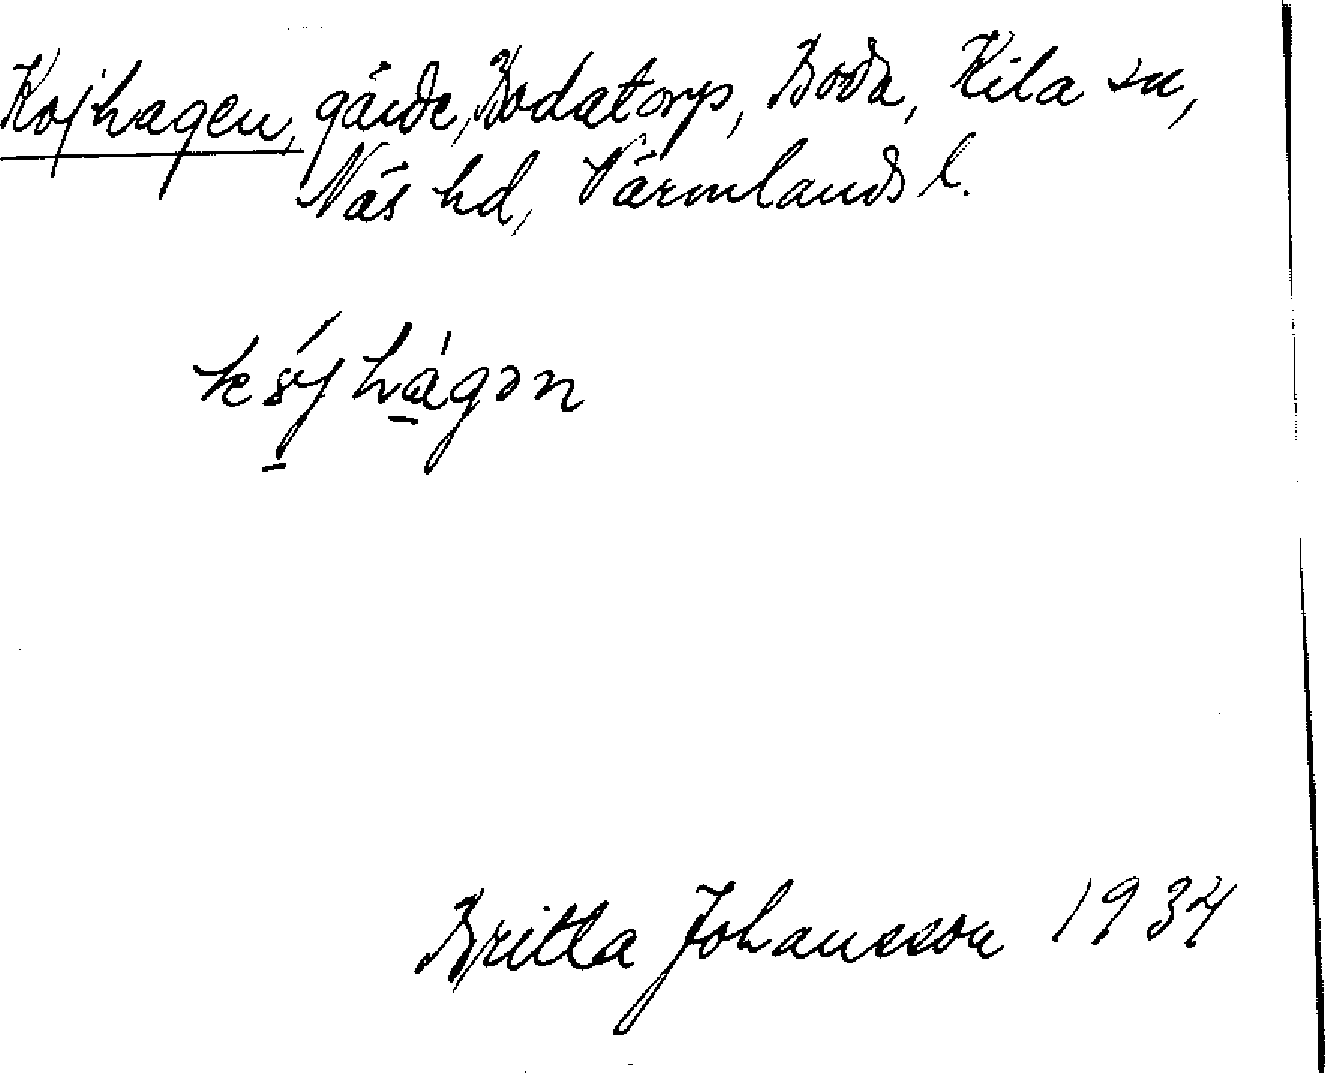 Kojhagen, gärde, Bodatorp, Boda, Kila sn,
Näs hd, Värmlands l.
Britta Johansson 1934